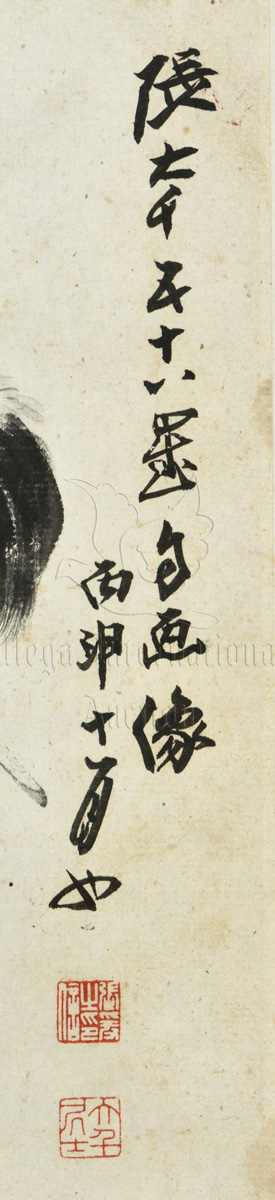 張大千五十八歲自画像
丙申十一月也
張爰之印信
大千居士